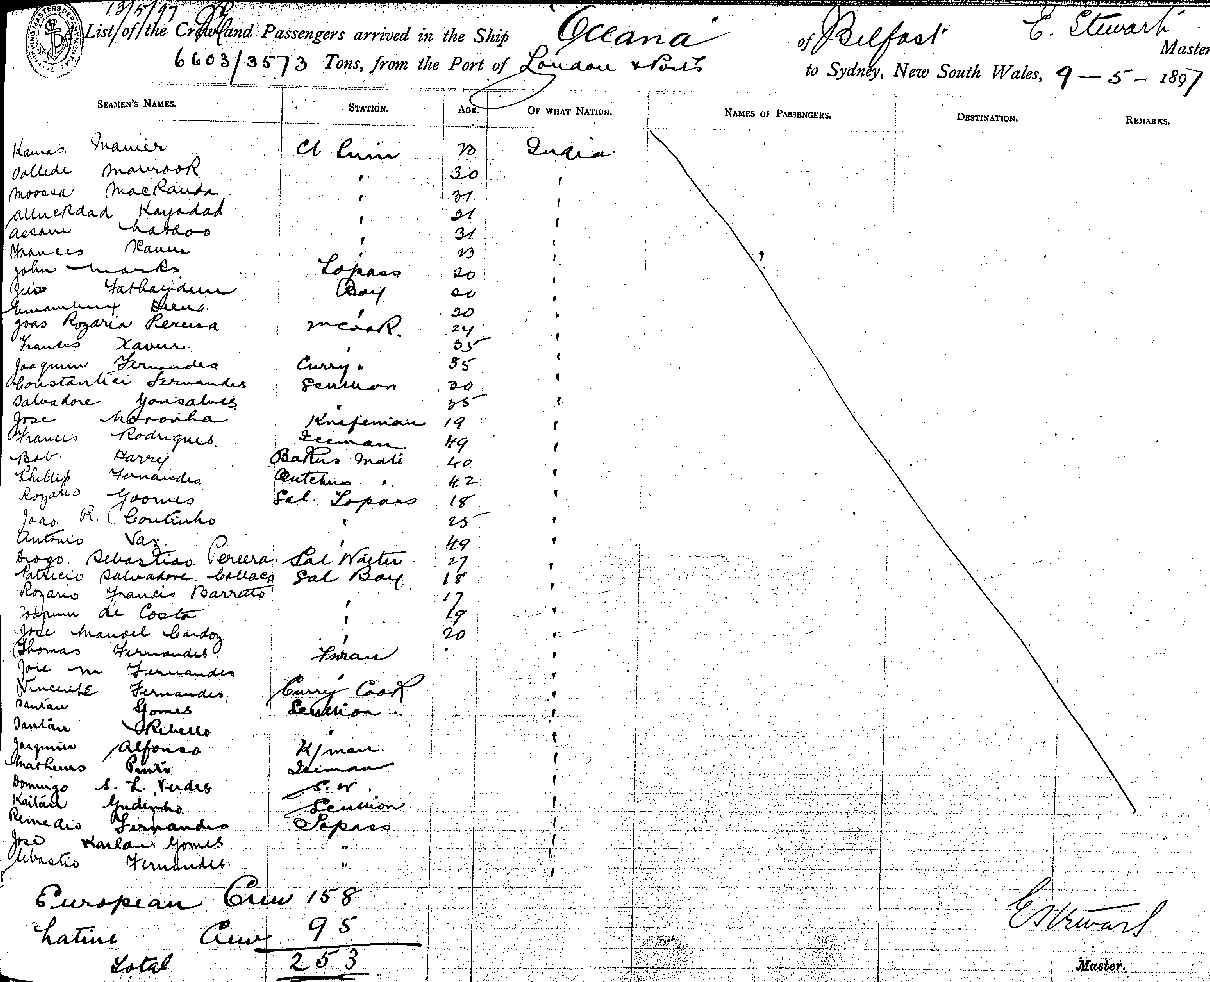 13/5/97
List of the Crew and Passengers arrived in the Ship "Oceana" of Belfast E. Stewart Master
6603/3573 Tons, from the Port of London & Ports to Sydney, New South Wales, 9 - 5 - 1897
SEAMEN'S NAMES. STATION. AGE. OF WHAT NATION. NAMES OF PASSENGERS. DESTINATION. REMARKS.
23 India
30 "
Moossa 31 "
31 "
31 "
Frances Xavier 23 "
John Marks Topass 20 "
Boy 20 "
20 "
Joas Rozario Pereira 24 "
Francis Xavier 35 "
Joaquim Fernandes Curry " 35 "
Fernandes Scullion 20 "
Salvadore Gonsalves " 35 "
Jose Noronha Knifeman 19 "
Francis Rodrigues Iceman 49 "
Bab. Harry Bakers Mate 40 "
Phillip Fernandes Butchers " 42 "
Rozario Goomes Sal. Topass 18 "
Joao R. Coutinho " 25 "
Antonio Vaz 49 "
Diogo Sebastiao Pereira Sal Waiter 27 "
Patricio Salvadore Collaco Sal Boy 18 "
Rozario Francis Barretto " 17 "
Joaquim de Costa " 19 "
Jose Manoel Cardoz " 20 "
Thomas Fernandes "
Jose M Fernandes "
Vincente Fernandes Curry Cook "
Santan Gomes Scullion "
Santan Rebello "
Joaquim Alfonso K/man "
Matheus Pinto Iceman "
Domingo S. L. "
Kaitan Gudinho Scullion "
Remedio Fernandes Topass "
Jose Kaitan Gomes " "
Sebastio Fernandes " "
European Crew 158
Native Crew 95
Total 253
E Stewart
Master.